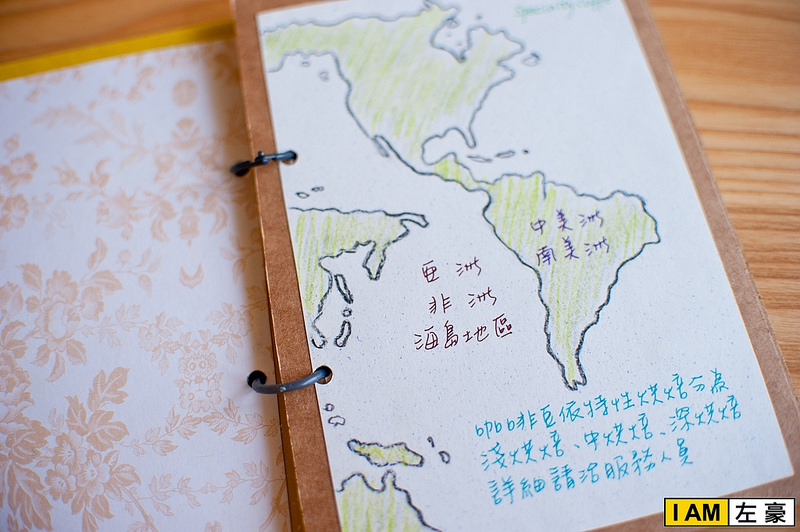 Specialty Coffee
中美洲
南美洲
亞洲
非洲
海島地區
咖啡豆依特性烘焙分為
淺烘焙、中烘焙、深烘焙
詳細請洽服務人員
I AM 左豪